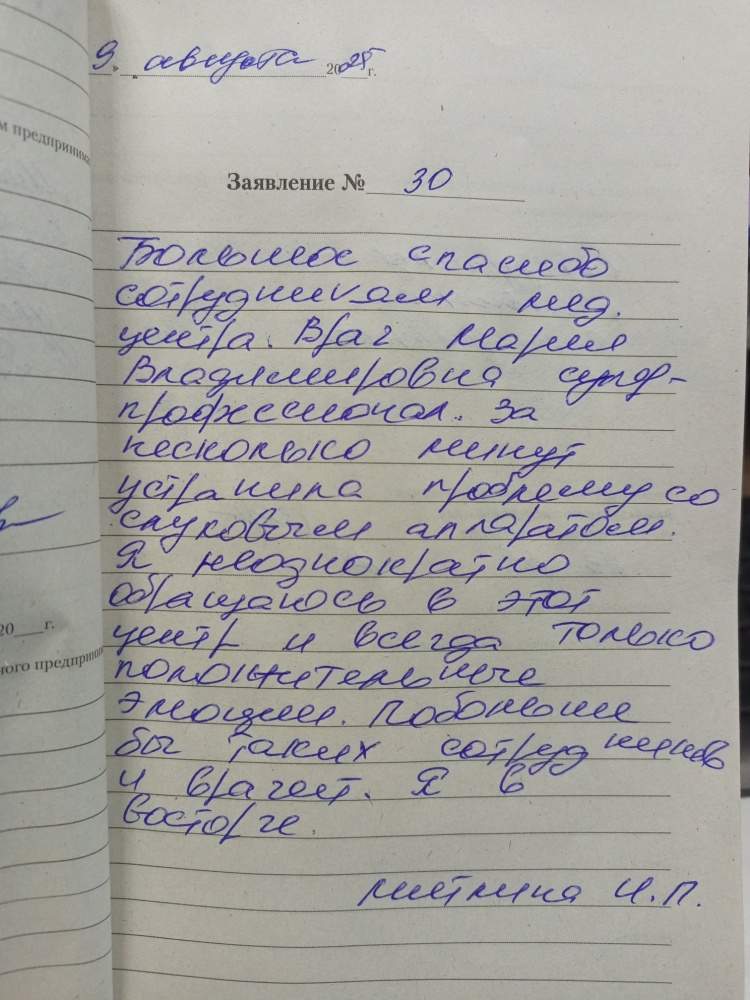 9 " августа 2025 г.
м предприним
Заявление № 30
Большое спасибо
сотрудникам мед.
центра. Врач Мария
Владимировна супер-
профессионал. За
несколько минут
устранила проблему со
слуховым аппаратом.
Я неоднократно
обращаюсь в этот
центр и всегда только
положительные
эмоции. Побольше
бы таких сотрудников
и врачей. Я в
восторге.
20 г.
ного предприни
И.П.